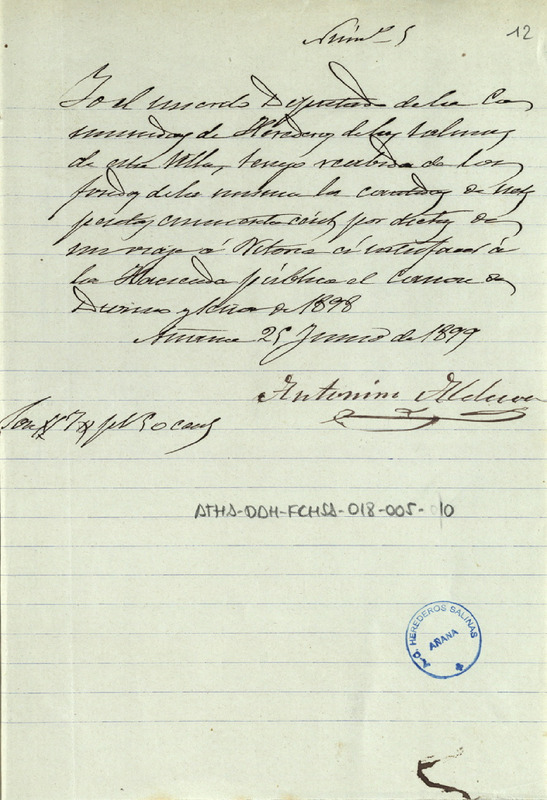 Núm.º 5
12
Yo el una Diputado de la Co
munidad de Herederos de las Salinas
de esta Villa, tengo recibida de los
fondos de la misma la cantidad de
pesetas cincuenta cénts por dietas de
mi viaje á Vitoria á satisfacer á
la Hacienda pública el Canon de
de 1898
Añana 25 Junio de 1899
Antonino
Son pts 50 cents
ATHA-DAH-FCHSA-018-005-010
HEREDEROS SALINAS
AÑANA